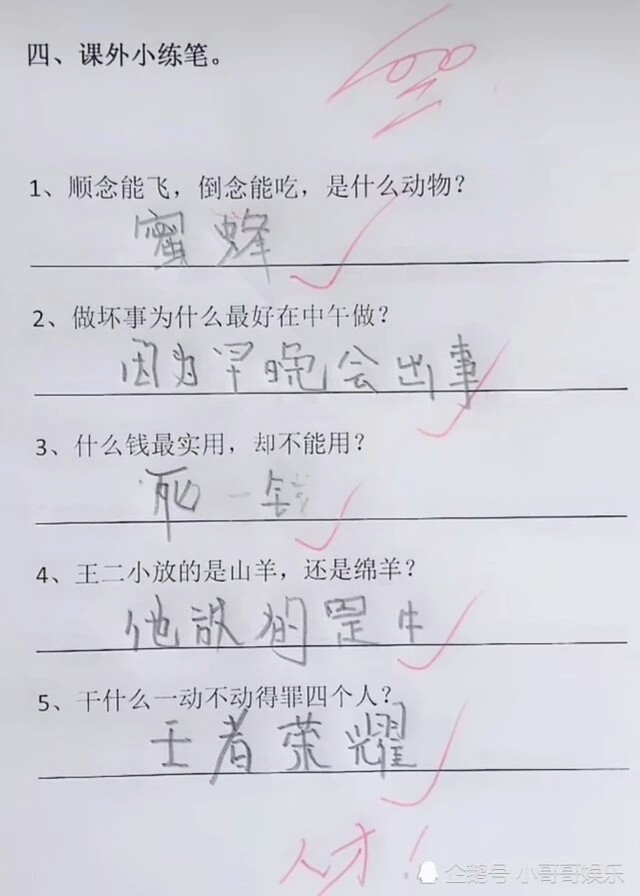 四、课外小练笔。
1、顺念能飞，倒念能吃，是什么动物？
蜜蜂
2、做坏事为什么最好在中午做？
因为早晚会出事
3、什么钱最实用，却不能用？
死一钱
4、王二小放的是山羊，还是绵羊？
他放的是牛
5、干什么一动不动得罪四个人？
王者荣耀
人才！
企鹅号 小哥哥娱乐